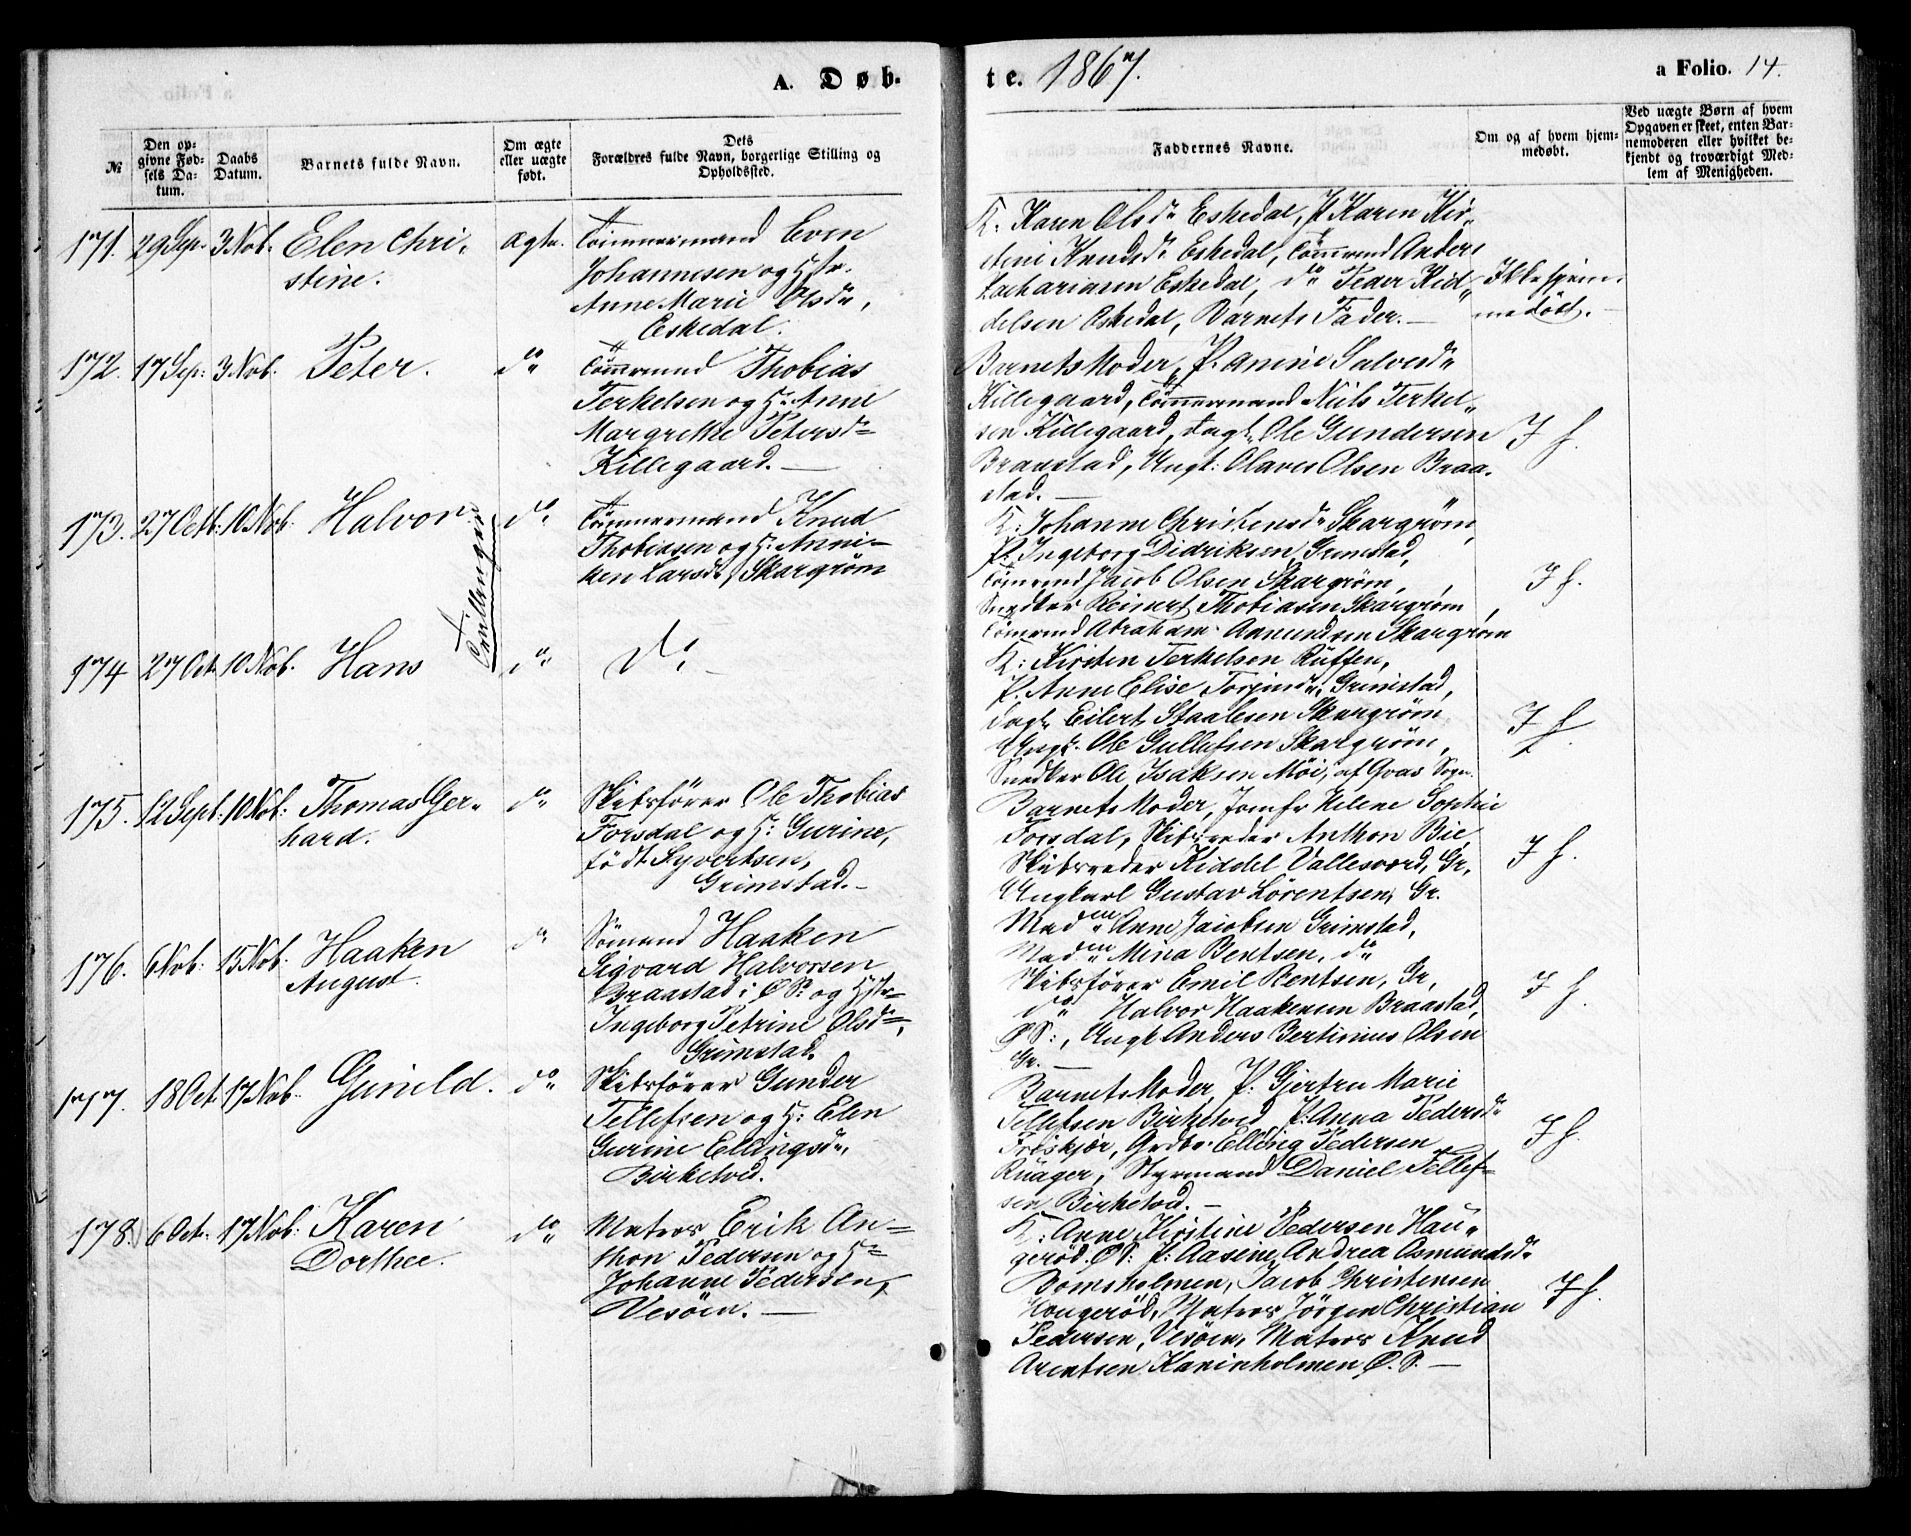 A. Døb-
te. 1867.
a Folio. 14.
№
Den op-
givne Fød-
sels Da-
tum.
Daabs
Datum.
Barnets fulde Navn.
Om ægte
eller uægte
født.
Dets
Forældres fulde Navn, borgerlige Stilling og
Opholdssted.
Faddernes Navne.
Om og af hvem hjem-
medøbt.
Ved uægte Børn af hvem
Opgaven er skeet, enten Bar-
nemoderen eller hvilket be-
kjendt og troværdigt Med-
lem af Menigheden.
171. 29 Sep. 3 Nob. Elen Chri-
stine.
ægte.
Tömmermand Even
Johannesen og Hstr.
Anne Marie Olsdr,
Eskedal.
K. Karen Olsdr Eskedal, P. Karen Kir-
stine Knudsdr Eskedal, Tömmermd Anders
Zachariasen Eskedal, do Peder Kid-
delsen Eskedal, Barnets Fader. —
Ikke hjem-
medöbt. —
172. 17 Sep: 3 Nob. Peter. do
Tömmermd Thobias
Terkelsen og H. Anne
Margrethe Petersdr
Killegaard. —
Barnets Moder, P. Anine Salvesdr
Killegaard, Tömmermand Niels Terkel-
sen Killegaard, Dagl. Ole Gundersen
Braastad, Ungk: Olaves Olsen Braa-
stad. —
I h.
173. 27 Octb: 10 Nob. Halvor do
Tvillenger
Tömmermand Knud
Thobiasen og H. Anni-
ken Larsdr, Skargröm
K: Johanne Christensdr Skargröm,
P. Ingeborg Didriksen Grimstad,
Tömmermd Jacob Olsen Skargröm,
Snedker Reinert Thobiasen Skargröm,
Tömmermd Abraham Aanundsen Skargröm
I h.
174 27 Oct. 10 Nob. Hans do do —
K: Kirsten Terkelsen Rüffen,
P. Anne Elise Torjusdr, Grimstad,
Dagl. Eilert Staalesen Skargröm
Ungk. Ole Gullefsen Skargröm,
Snedker Ole Isaksen Möi, af Qvas Sogn.
I h.
175. 12 Sept: 10 Nob: Thomas Ger-
hard. do
Skibsförer Ole Thobias
Forsdal og H: Gurine,
född Syvertsen,
Grimstad. —
Barnets Moder, Jomfr Helene Sophie
Forsdal, Skibsreder Anthon Bie,
Skibsreder Kiddel Vallesværd, Gr,
Ungkarl Gustav Lörentsen, Gr.
I h.
176. 6 Nob: 15 Nob. Haaken
August. do
Sömand Haaken
Sigvard Halvorsen
Braastad i Ø. S. og Hstr
Ingeborg Petrine Olsdr,
Grimstad.
Madm Anne Jacobsen Grimstad,
Madm Mina Bentsen, do
Skibsförer Emil Bentsen, Gr,
do Halvor Haakensen Braastad,
Ø S:, Ungk Anders Bertinius Olsen
Gr. —
I h.
177. 18 Oct. 17 Nob. Gunild. do
Skibsförer Gunder
Tellefsen og H: Elen
Gurine Ellingsdr,
Birketvd.
Barnets Moder, P. Gjertru Marie
Tellefsen Birketvd P: Anna Pedersdr
Friskjær, Grdbr Elling Pedersen
Rüager, Styrmand Daniel Tellef-
sen Birketvd. —
I h.
178. 6 Oct. 17 Nob: Karen
Dorthee. do
Matros Erik An-
thon Pedersen og Hr
Johanne Pedersen,
Vesöen. —
K: Anne Kirstine Pedersen Hau-
geröd. Ø S: P: Aasine Andrea Osmundsdr
Bomsholmen, Jacob Christensen
Haugeröd, Matros Jörgen Christian
Pedersen, Vesöen, Matros Knud
Arentsen Kaninholmen Ø. S. —
I h.